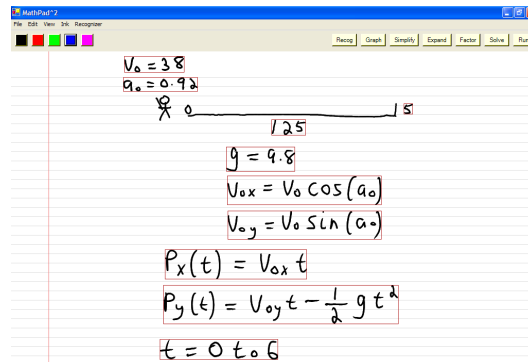 MathPad^2
File Edit View Ink Recognizer
Recog Graph Simplify Expand Factor Solve Run
V₀ = 38
a₀ = 0.92
0 5
125
g = 9.8
V₀x = V₀ cos(a₀)
V₀y = V₀ sin(a₀)
Px(t) = V₀x t
Py(t) = V₀y t - 1/2 g t²
t = 0 to 6